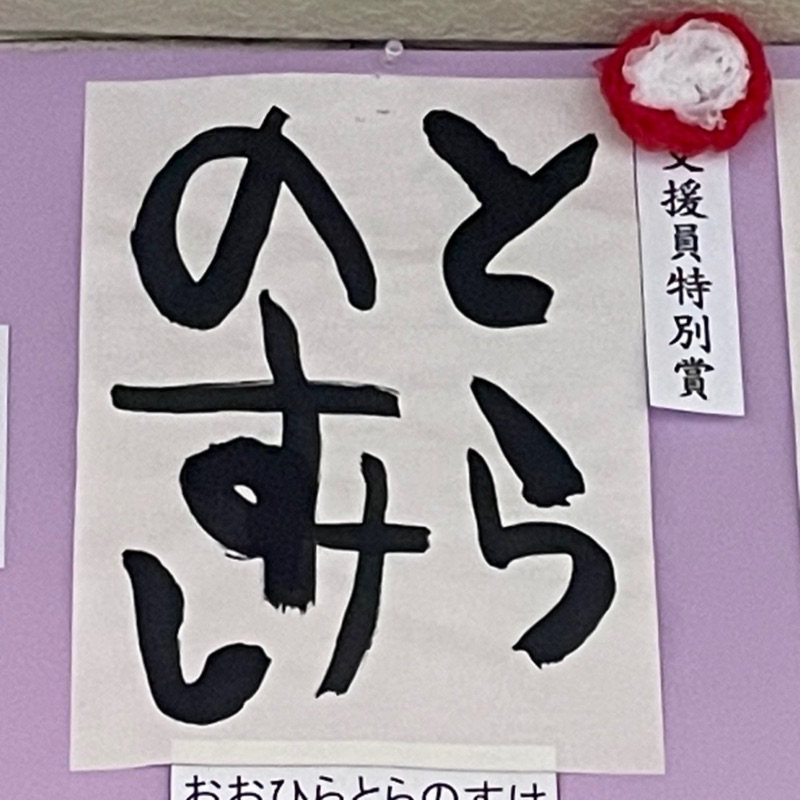 支援員特別賞
とら
のすけ
おおひらとらのすけ